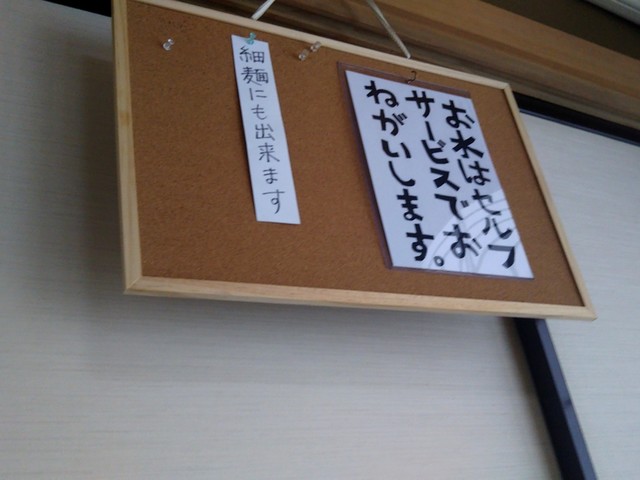 お水はセルフ
サービスでお
ねがいします。
細麺にも出来ます